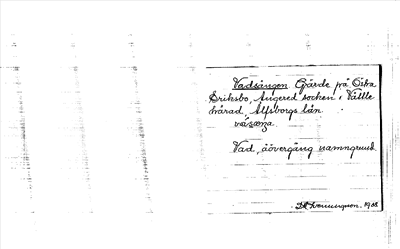 Vadsängen Gärde på Östra
Eriksbo, Angered socken i Vättle
härad, Älfsborgs län
Vad, åövergång namngrund.
1938.